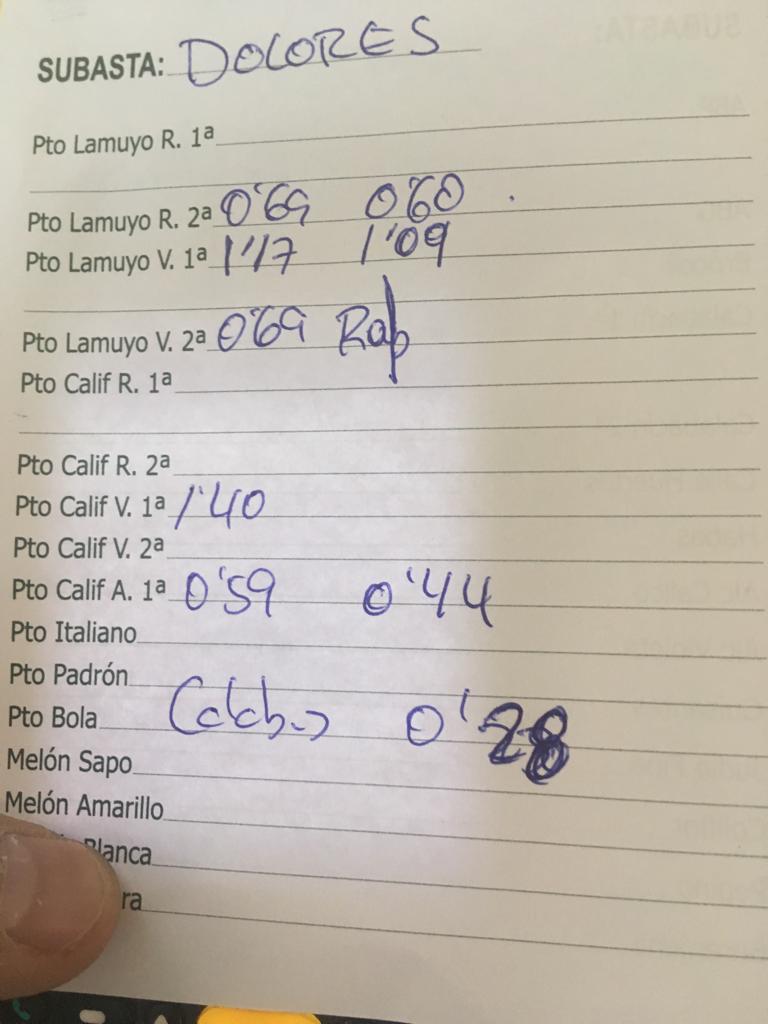 SUBASTA: DOLORES
Pto Lamuyo R. 1ª
Pto Lamuyo R. 2ª 0'69 0'60
Pto Lamuyo V. 1ª 1'17 1'09
Pto Lamuyo V. 2ª 0'69 Rap
Pto Calif R. 1ª
Pto Calif R. 2ª
Pto Calif V. 1ª 1'40
Pto Calif V. 2ª
Pto Calif A. 1ª 0'59 0'44
Pto Italiano
Pto Padrón
Pto Bola 0'28
Melón Sapo
Melón Amarillo
Blanca
ra